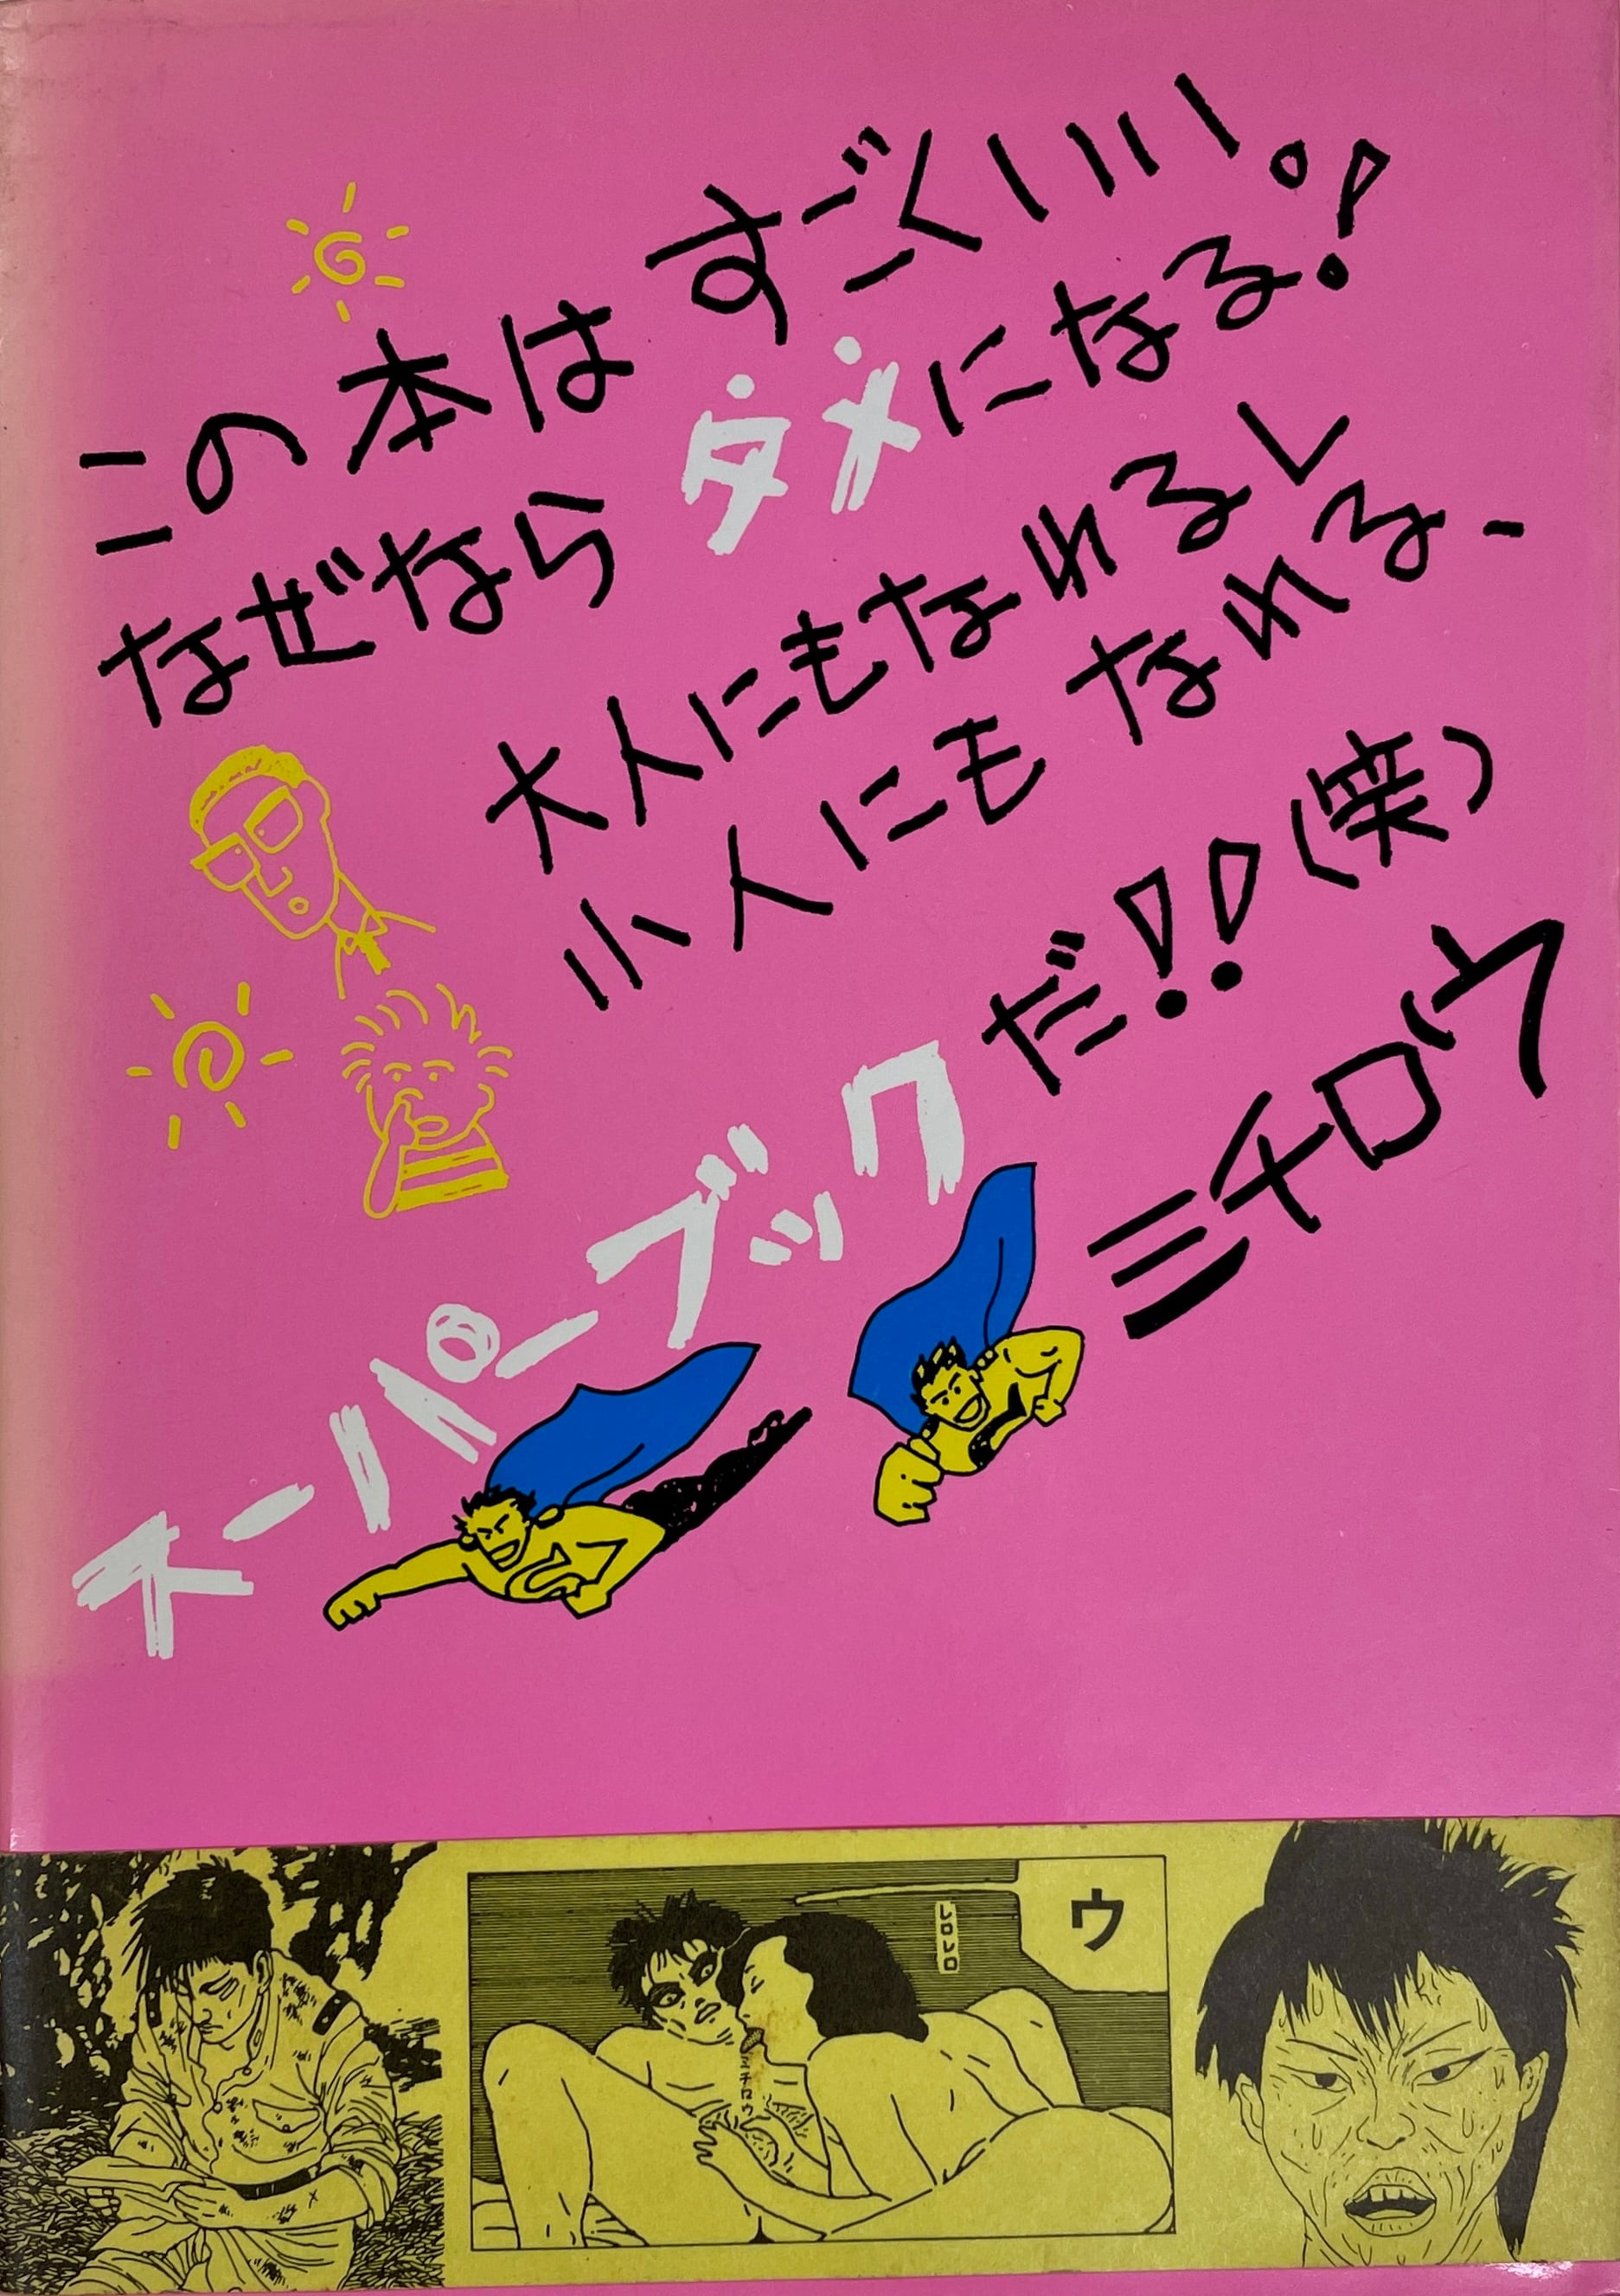 この本はすごくいい。
なぜならダメになる!
大人にもなれるし
小人にもなれる、
スーパーブックだ!!(笑)
ミチロウ
ウ
レロレロ
ミチロウ